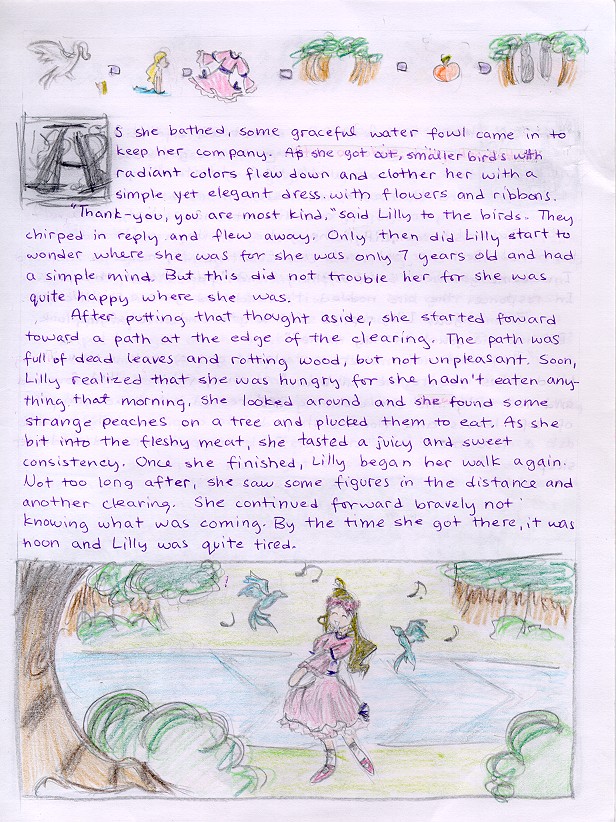 As she bathed, some graceful water fowl came in to
keep her company. As she got out, smaller birds with
radiant colors flew down and clother her with a
simple yet elegant dress with flowers and ribbons.
"Thank-you, you are most kind," said Lilly to the birds. They
chirped in reply and flew away. Only then did Lilly start to
wonder where she was for she was only 7 years old and had
a simple mind. But this did not trouble her for she was
quite happy where she was.
After putting that thought aside, she started foward
toward a path at the edge of the clearing. The path was
full of dead leaves and rotting wood, but not unpleasant. Soon,
Lilly realized that she was hungry for she hadn't eaten any-
thing that morning. She looked around and she found some
strange peaches on a tree and plucked them to eat. As she
bit into the fleshy meat, she tasted a juicy and sweet
consistency. Once she finished, Lilly began her walk again.
Not too long after, she saw some figures in the distance and
another clearing. She continued forward bravely not
knowing what was coming. By the time she got there, it was
noon and Lilly was quite tired.